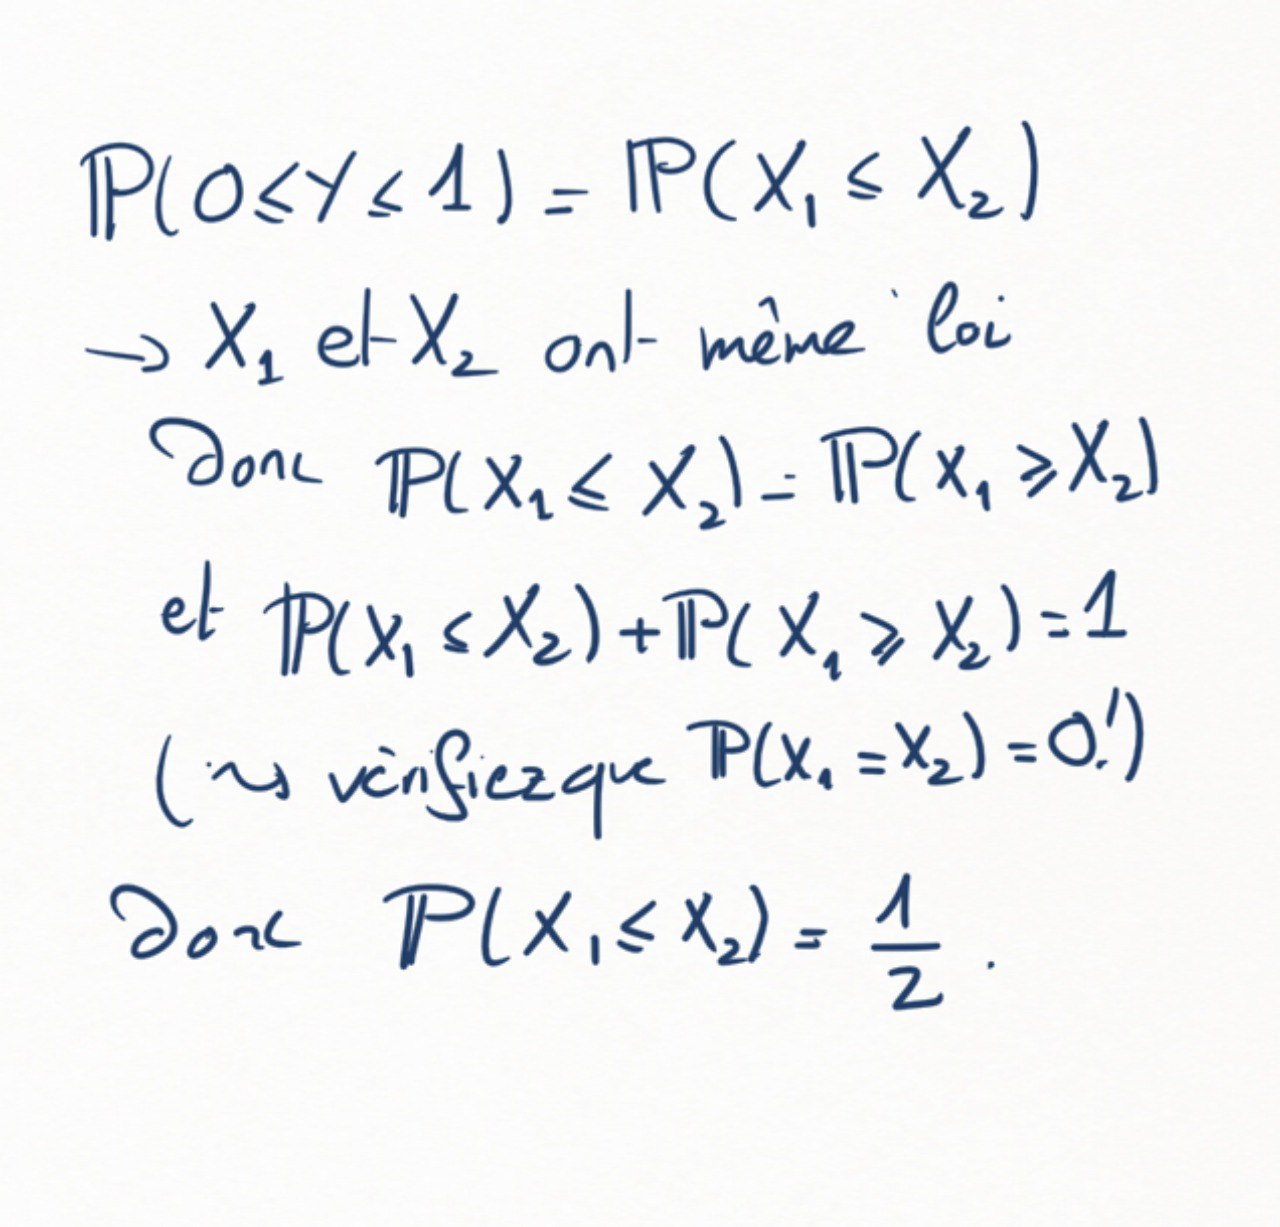 ℙ(0≤Y≤1) = ℙ(X₁ ≤ X₂)
→ X₁ et X₂ ont même loi
Donc ℙ(X₁ ≤ X₂) = ℙ(X₁ ⩾ X₂)
et ℙ(X₁ ≤ X₂) + ℙ(X₁ ⩾ X₂) = 1
(⇝ vérifiez que ℙ(X₁ = X₂) = 0!)
Donc ℙ(X₁ ≤ X₂) = 1/2.